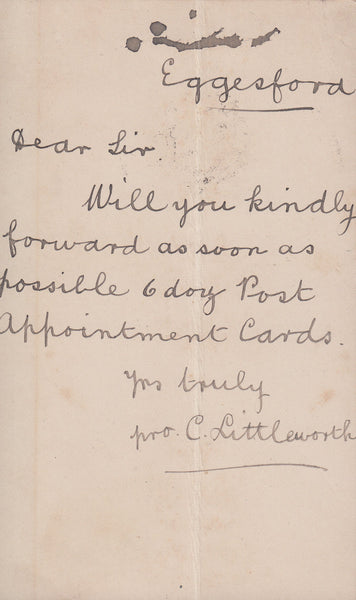 Eggesford
Dear Sir
Will you kindly
forward as soon as
possible 6 doz Post
Appointment Cards.
Yrs truly
pro. C. Littleworth